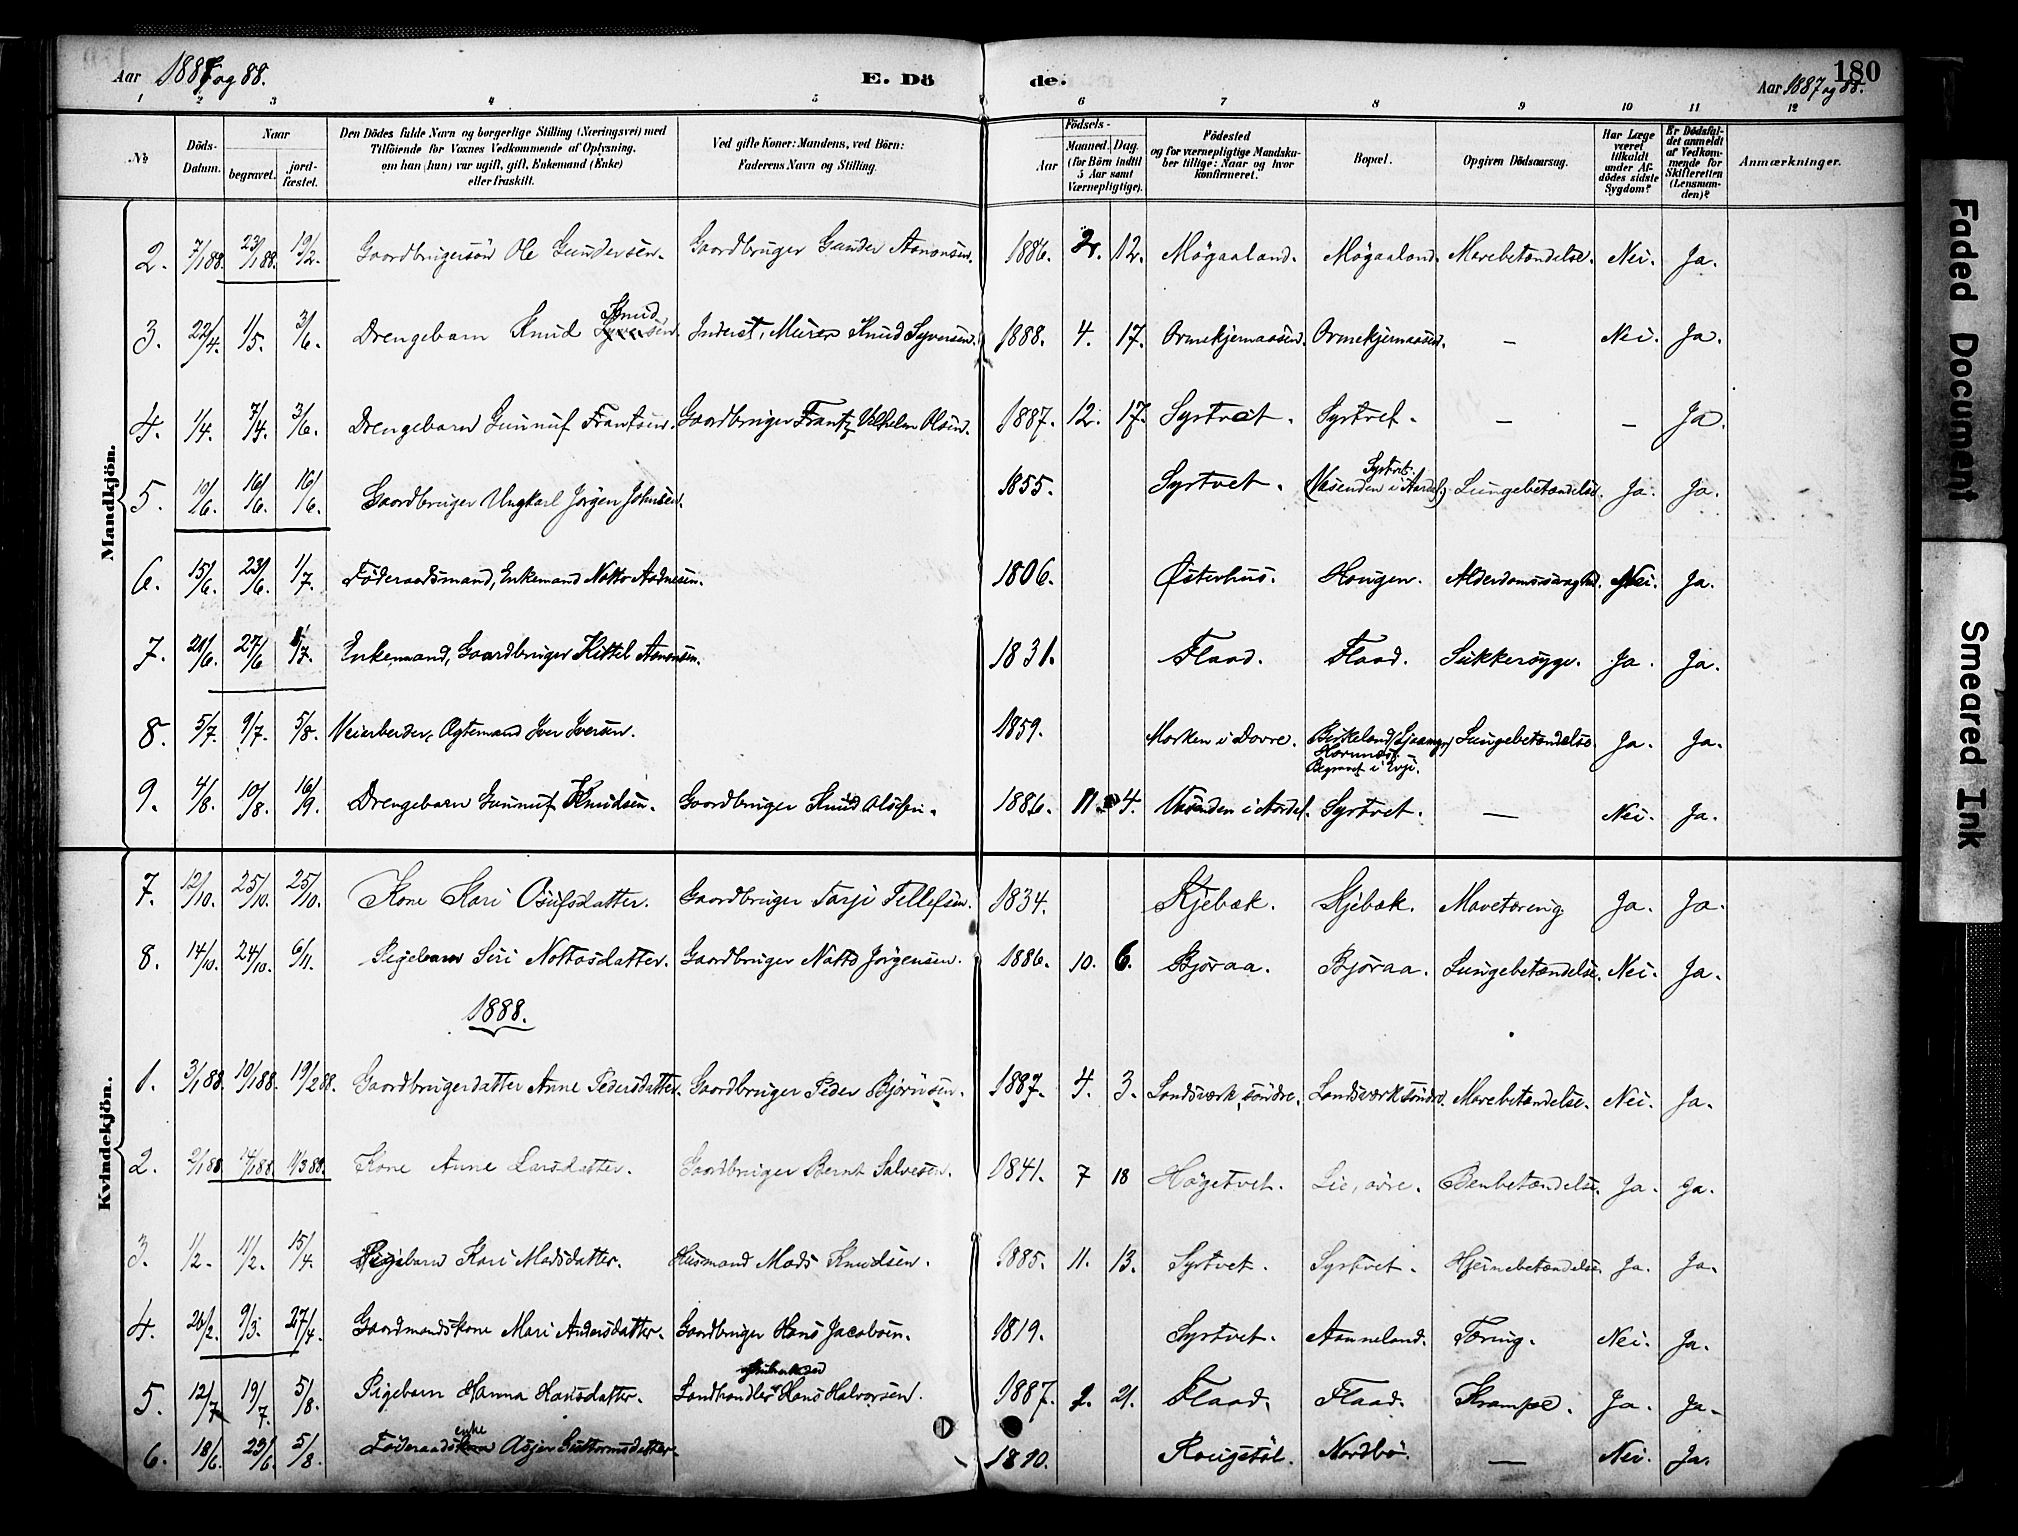 Aar 1887 og 88. E. Dö de. Aar 1887 og 88. 180
1 2 3 4 5 6 7 8 9 10 11 12
No Döds-Datum. Naar begravet. jord-fæstet. Den Dödes fulde Navn og borgerlige Stilling (Næringsvei) med Tilföiende for Voxnes Vedkommende af Oplysning, om han (hun) var ugift, gift, Enkemand (Enke) eller fraskilt. Ved gifte Koner: Mandens, ved Börn: Faderens Navn og Stilling. Födsels- Aar Maaned. Dag. (for Börn indtil 5 Aar samt Værnepligtige). Födested og for værnepligtige Mandskaber tillige: Naar og hvor konfirmeret. Bopæl. Opgiven Dödsaarsag. Har Læge været tilkaldt under Afdödes sidste Sygdom? Er Dödsfaldet anmeldt af Vedkommende for Skifteretten (Lensmanden)? Anmærkninger.
Mandkjön.
2. 7/1 88. 23/1 88. 19/2. Gaardbrugersön Ole Gundersen. Gaardbruger Gunder Aanonsen. 1886. 2. 12. Møgaaland. Møgaaland. Mavebetændelse. Nei. Ja.
3. 22/4. 1/5. 3/6. Drengebarn Knud Knudsen. Inderst, Murer Knud Syversen. 1888. 4. 17. Ormekjernaasen. Ormekjernaasen. — Nei. Ja.
4. 1/4. 7/4. 3/6. Drengebarn Gunnuf Frantsen. Gaardbruger Frantz Vilhelm Olsen. 1887. 12. 17. Syrtveit. Syrtvet. — — Ja.
5. 10/6. 16/6. 16/6. Gaardbruger Ungkarl Jørgen Johnsen. 1855. Syrtvet. Syrtvet. (Vasenden i Aardal.) Lungebetændelse. Ja. Ja.
6. 15/6. 23/6. 1/7. Føderaadsmand, Enkemand Notto Aadnesen. 1806. Østerhus. Hougen. Alderdomssvaghed. Nei. Ja.
7. 21/6. 27/6. 1/7. Enkemand, Gaardbruger Kittel Aanonsen. 1831. Flaad. Flaad. Sukkersyge. Ja. Ja.
8. 5/7. 9/7. 5/8. Veiarbeider, Ægtemand Iver Iversen. 1859. Morken i Dovre. Birkeland, Hornnæs. Begravet i Evje. Lungebetændelse. Ja. Ja.
9. 4/8. 10/8. 16/9. Drengebarn Gunnuf Knudsen. Gaardbruger Knud Olsen. 1886. 11. 4. Vasenden i Aardal. Syrtvet. — Nei. Ja.
Kvindekjön.
7. 12/10. 25/10. 25/10. Kone Kari Osufsdatter. Gaardbruger Tarje Tellefsen. 1834. Kjebæk. Kjebæk. Mavetæring Ja. Ja.
8. 14/10. 24/10. 6/11. Pigebarn Siri Nottosdatter. Gaardbruger Notto Jørgensen. 1886. 10. 6. Bjøraa. Bjøraa. Lungebetændelse. Nei. Ja.
1888.
1. 3/1 88. 10/1 88. 19/2 88. Gaardbrugerdatter Anne Pedersdatter. Gaardbruger Peder Bjørnsen. 1887. 4. 3. Landsværk, søndre. Landsværk søndre. Mavebetændelse. Nei. Ja.
2. 2/1 88. 14/1 88. 11/3 88. Kone Anne Larsdatter. Gaardbruger Bernt Salvesen. 1841. 7 18 Høgetvet. Lie, øvre. Benbetændelse. Ja. Ja.
3. 1/2. 11/2. 15/4. Pigebarn Kari Madsdatter. Husmand Mads Knudsen. 1885. 11. 13. Syrtvet. Syrtvet. Hjernebetændelse. Ja. Ja.
4. 20/2. 9/3. 27/4. Gaardmandskone Mari Andersdatter. Gaardbruger Hans Jacobsen. 1819. Syrtvet. Aanneland. Tæring. Nei. Ja.
5. 12/7. 19/7. 5/8. Pigebarn Hanna Hansdatter. Landhandler Hans Halvorsen. 1887. 2. 21. Flaad. Flaad. Krampe. Ja. Ja.
6. 18/6. 23/6. 5/8. Føderaadsenke Asjer Guttormsdatter. 1810. Rougstøl. Nordbø. — Nei. Ja.
Faded Document
Smeared Ink